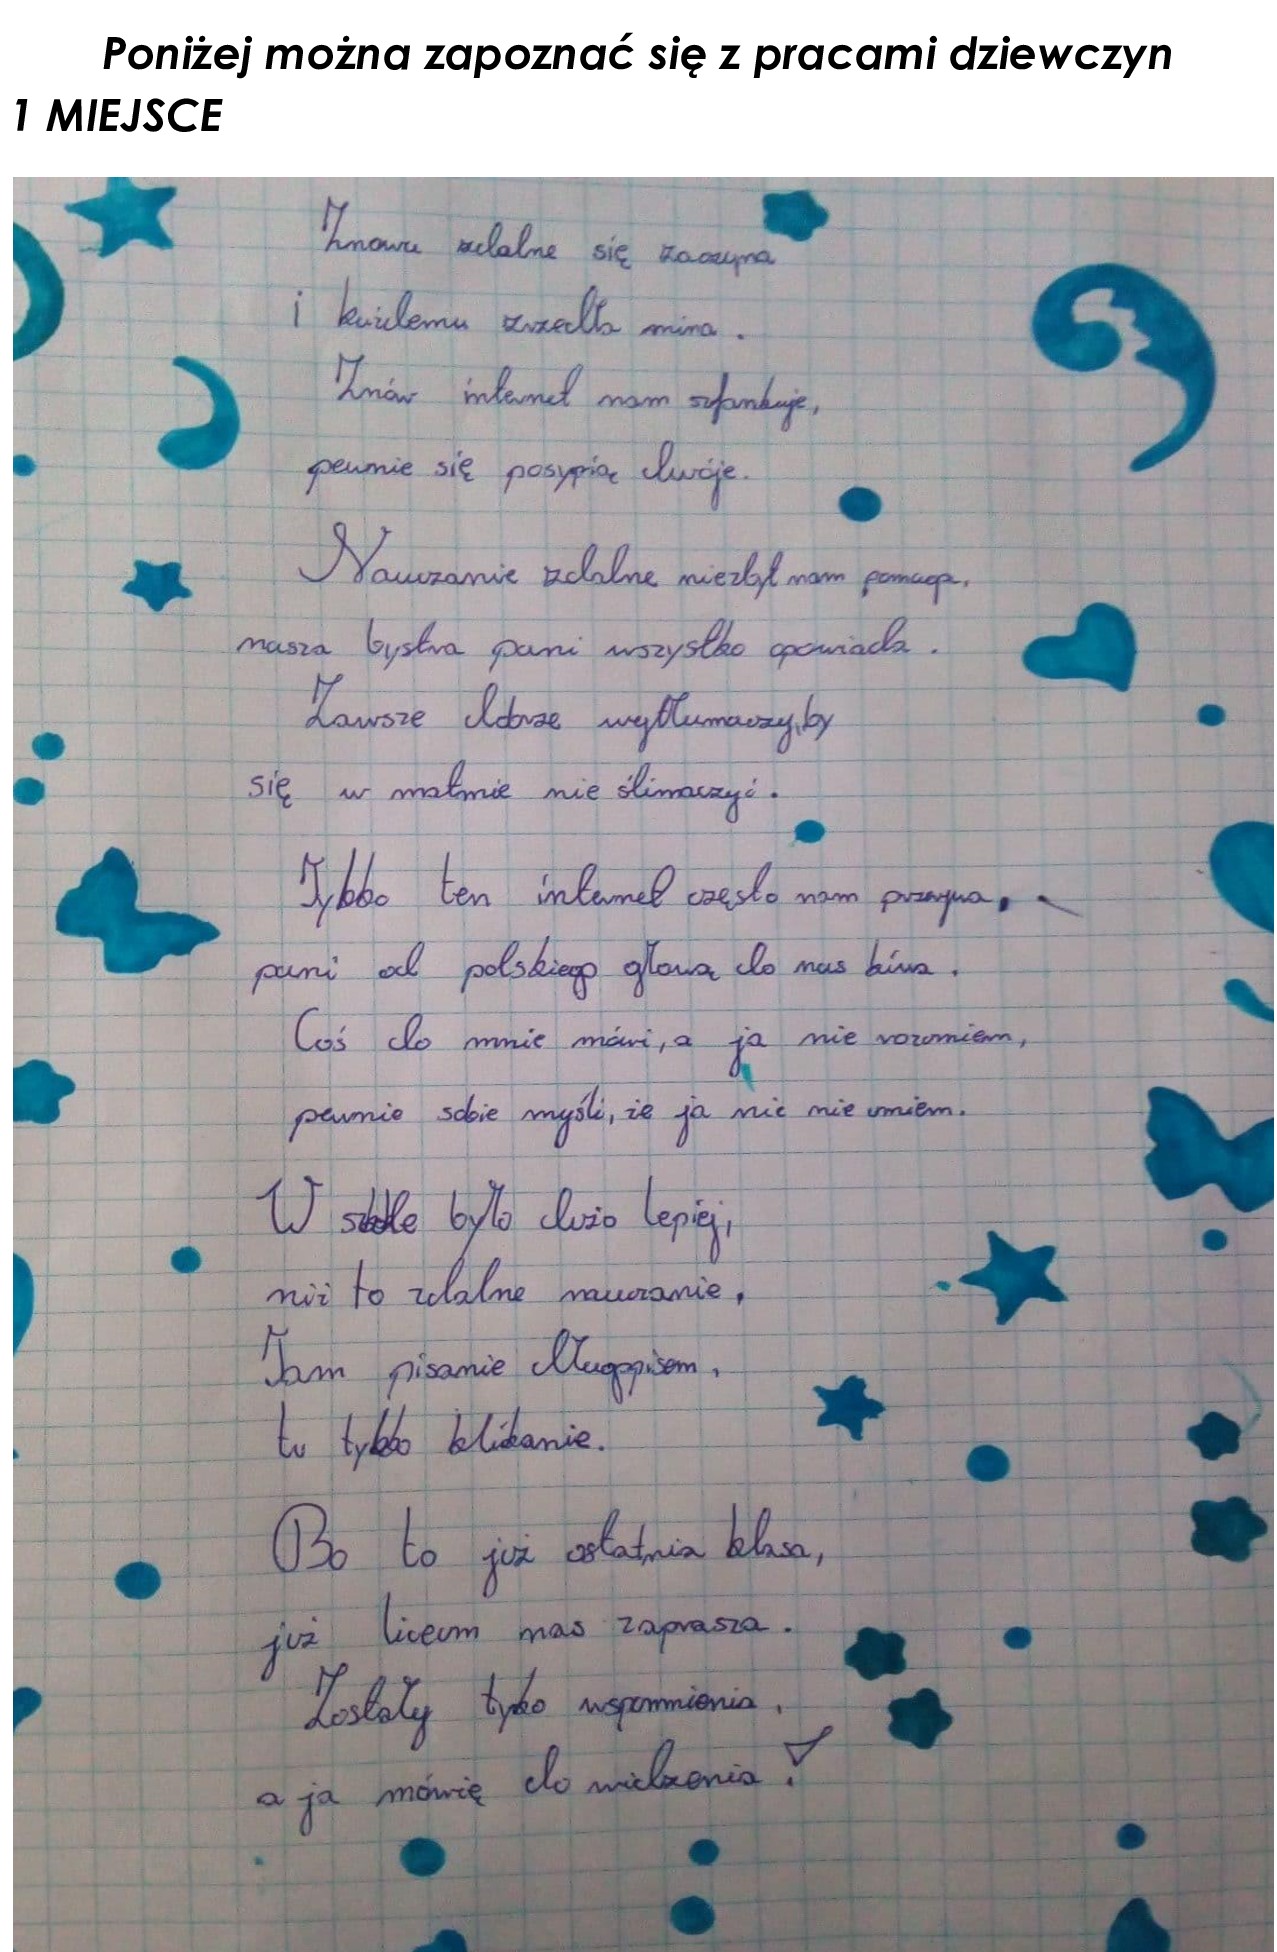 Poniżej można zapoznać się z pracami dziewczyn
1 MIEJSCE
Znowu zdalne się zaczyna
i każdemu zrzedła mina.
Znów internet nam szfankuje,
pewnie się posypią dwóje.
Nauczanie zdalne niezbyt nam pomaga,
nasza bystra pani wszystko opowiada.
Zawsze dobrze wytłumaczy, by
się w matmie nie ślimaczyć.
Tylko ten internet często nam przerywa,
pani od polskiego głową do nas kiwa.
Coś do mnie mówi, a ja nie rozumiem,
pewnie sobie myśli, że ja nic nie umiem.
W szkole było dużo lepiej,
niż to zdalne nauczanie,
Tam pisanie długopisem,
tu tylko klikanie.
Bo to już ostatnia klasa,
już liceum nas zaprasza.
Zostały tylko wspomnienia,
a ja mówię do widzenia!